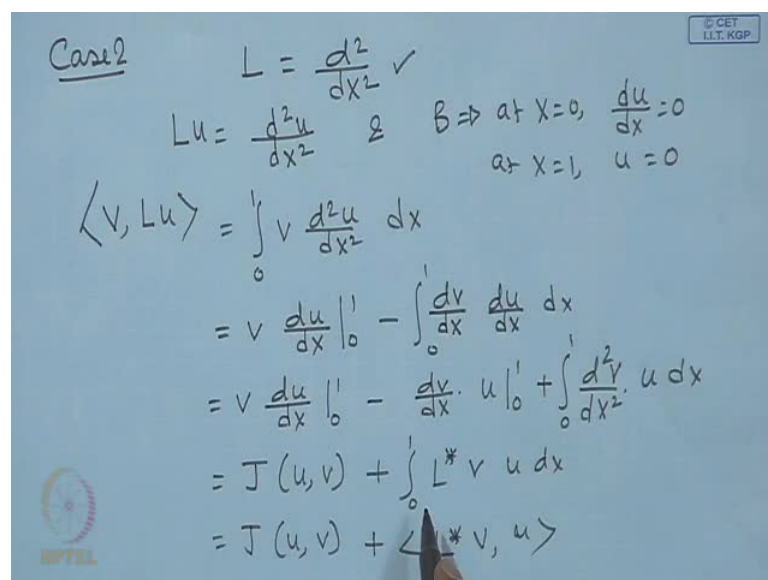 © CET
I.I.T. KGP
Case 2 L = d²/dx² ✓
Lu = d²u/dx² & B ⇒ at x=0, du/dx = 0
at x=1, u = 0
⟨v, Lu⟩ = ∫₀¹ v d²u/dx² dx
= v du/dx |₀¹ - ∫₀¹ dv/dx du/dx dx
= v du/dx |₀¹ - dv/dx · u |₀¹ + ∫₀¹ d²v/dx² · u dx
= J(u,v) + ∫₀¹ L* v u dx
= J(u,v) + ⟨L* v, u⟩
NPTEL